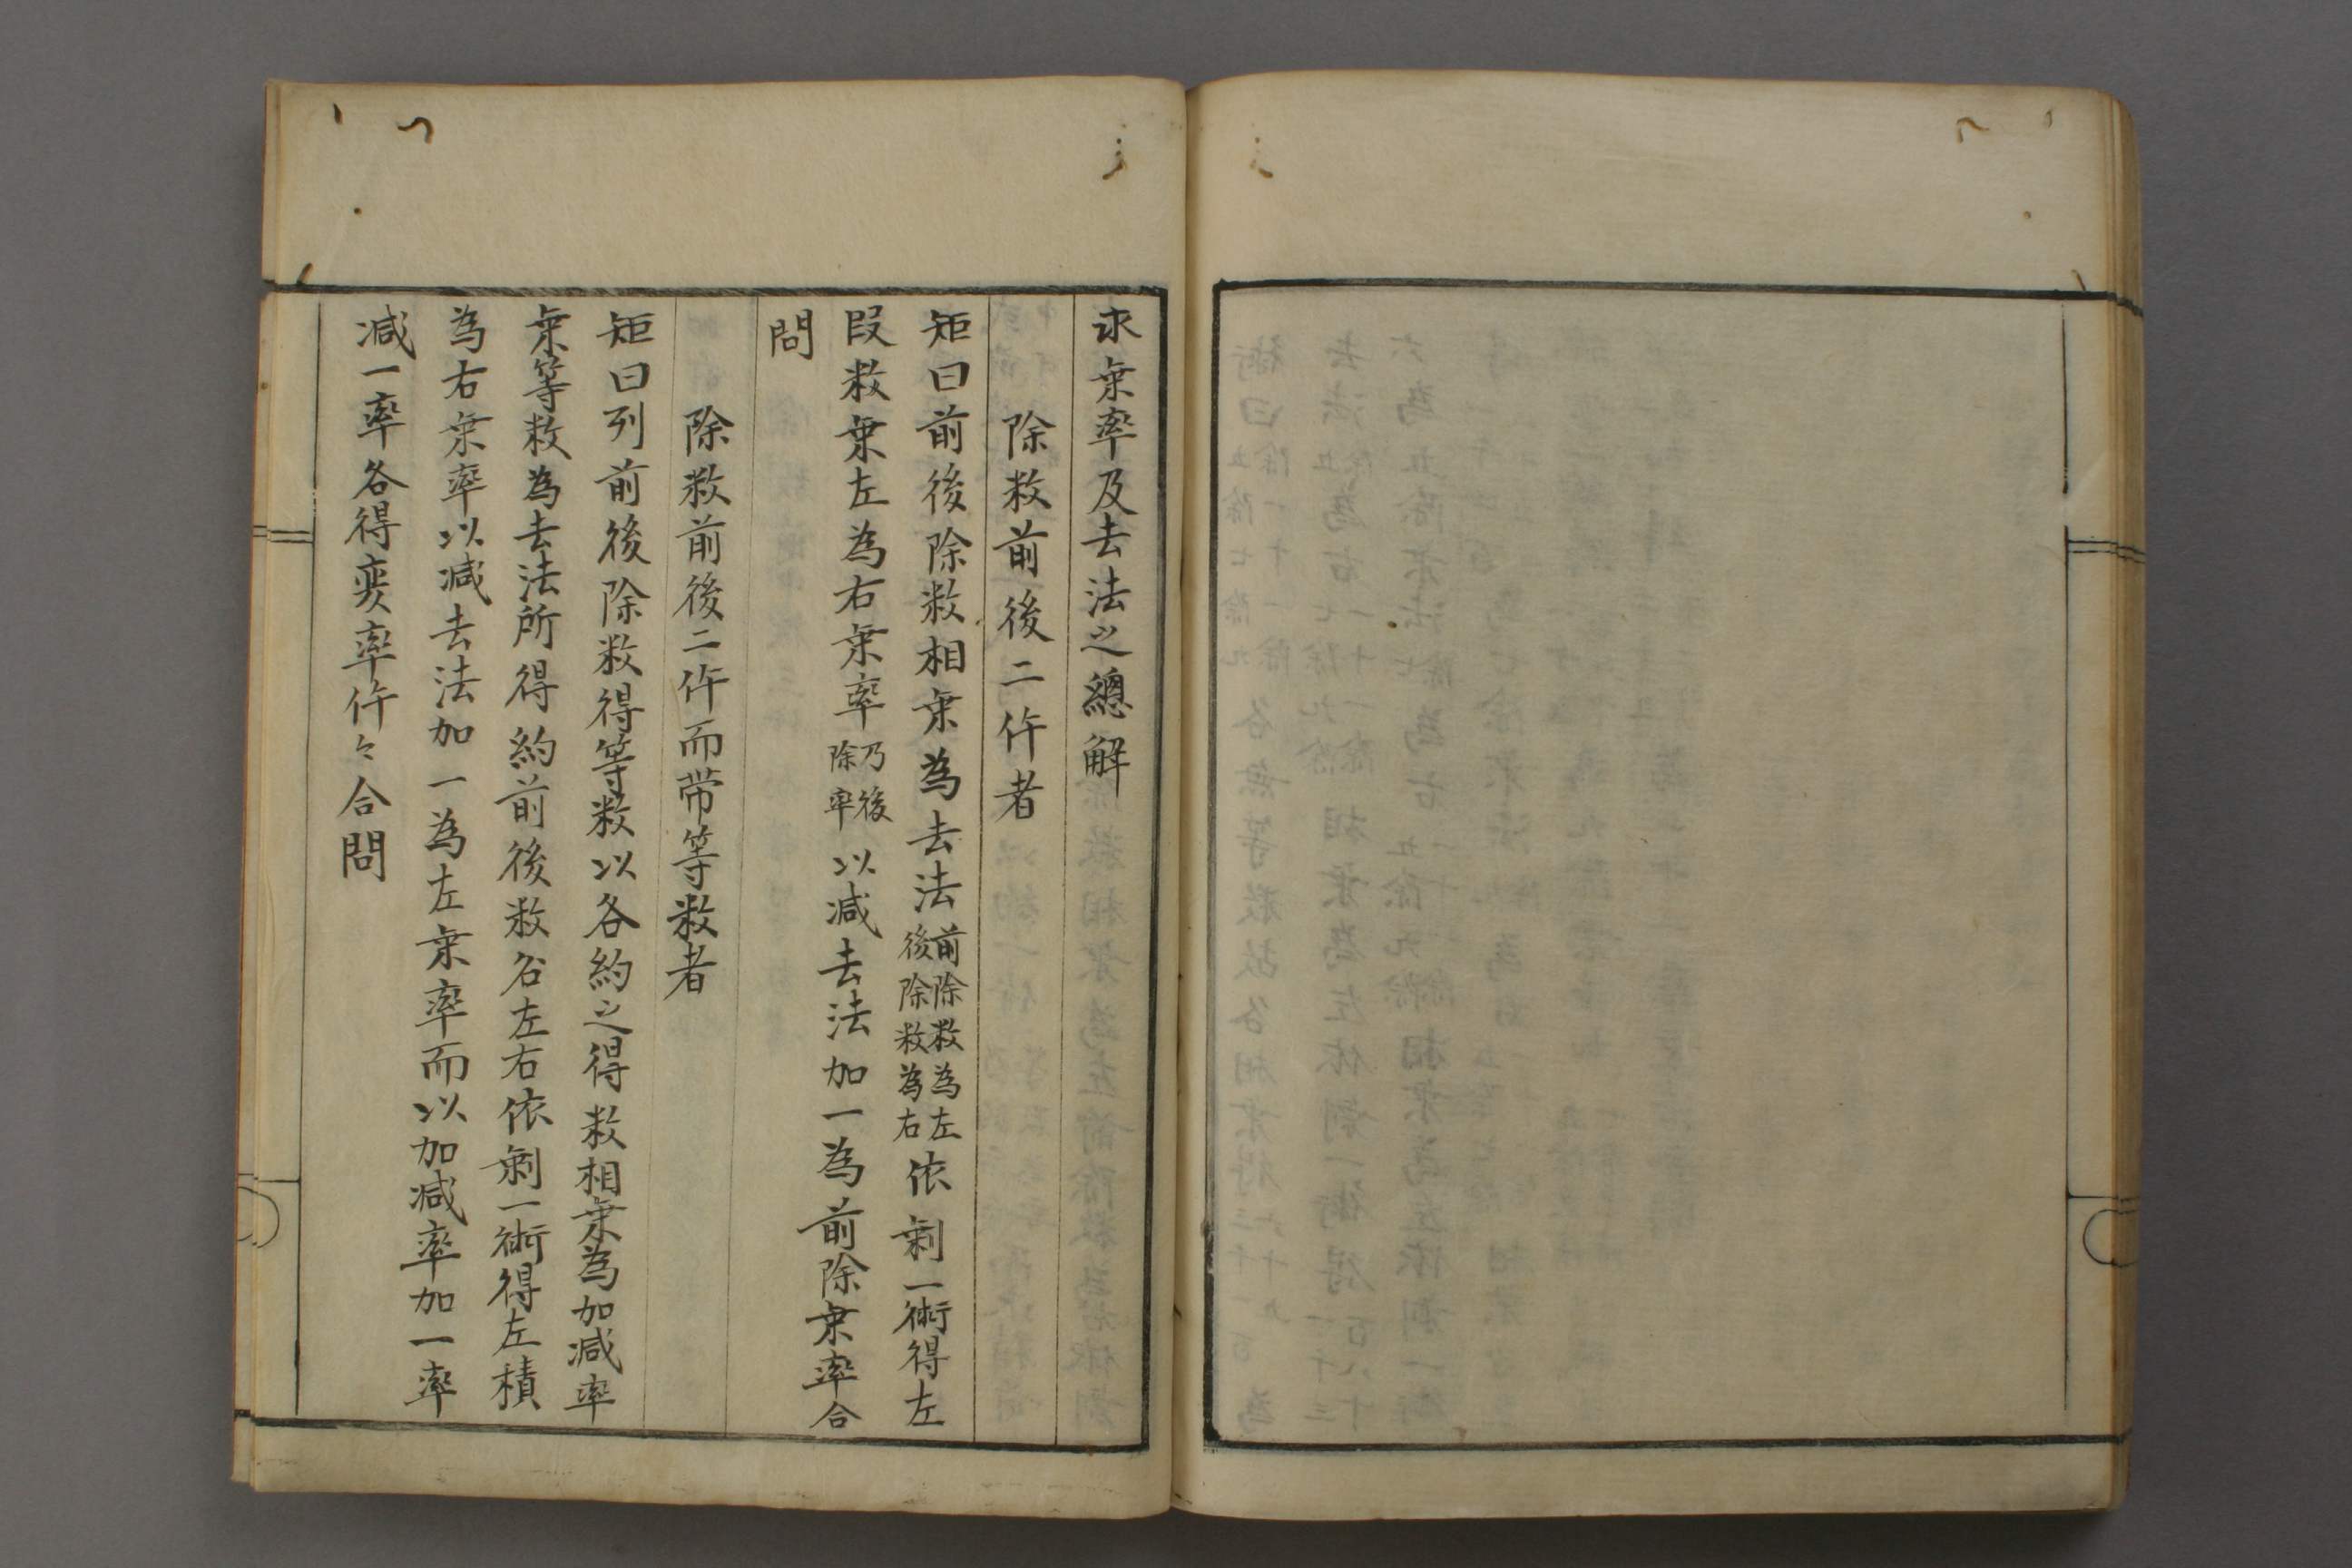 求乗率及去法之總解
除数前後二件者
矩曰前後除数相乗為去法前除数為左後除数為右依剰一術得左
段数乗左為右乗率乃後除率以減去法加一為前除乗率合
問
除数前後二件而帯等数者
矩曰列前後除数得等数以各約之得数相乗為加減率
乗等数為去法所得約前後数名左右依剰一術得左積
為右乗率以減去法加一為左乗率而以加減率加一率
減一率各得奕率件々合問